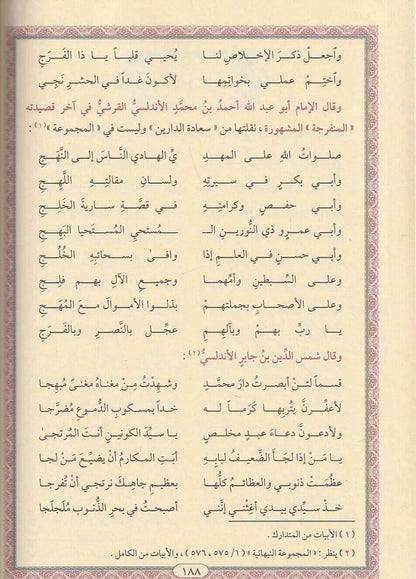 واجعلْ ذكرَ الإخلاصِ لنا يُحيي قلباً يا ذا الفَرَجِ
واختِمْ عملي بخواتِمِها لأكونَ غداً في الحشرِ نَجِي
وقال الإمام أبو عبد الله أحمدُ بنُ محمَّدٍ الأندلسيُّ القرشيُّ في آخر قصيدته
« المنفرجة » المشهورة ، نقلتها من « سعادة الدارين » وليست في « المجموعة »(١) :
صلواتُ اللهِ على المهدِ يِّ الهادي النَّاسَ إلى النَّهَجِ
وأبي بكرٍ في سيرتِهِ ولسانِ مقالتِهِ اللَّهِجِ
وأبي حفصٍ وكرامتِهِ في قصَّةِ ساريةَ الخَلِجِ
وأبي عمرٍو ذي النُّورينِ الـ ـمُستحيِ المُستَحيا البَهِجِ
وأبي حسنٍ في العلمِ إذا وافىٰ بسحائبِهِ الخُلُجِ
وعلى السِّبطينِ وأمِّهما وجميعِ الآلِ بهم فلِجِ
وعلى الأصحابِ بجملتهمْ بذلوا الأموالَ معَ المُهَجِ
يا ربِّ بهمْ وبآلِهِمِ عجِّل بالنَّصرِ وبالفَرَجِ
وقال شمس الدِّين بنُ جابرٍ الأندلسيُّ(٢) :
قسماً لئنْ أبصرتُ دارَ محمَّدٍ وشهِدْتُ مِنْ مغناهُ مغنىً مُبهِجا
لأعفِّرنَّ بتُربِها كَرَماً له خداً بمسكوبِ الدُّموعِ مُضرَّجا
ولأدعونَّ دعاءَ عبدٍ مخلصٍ يا سيِّدَ الكونينِ أنتَ المُرتجىٰ
يا مَنْ إذا لجأَ الضَّعيفُ لبابِهِ أبَتِ المكارمُ أنْ يضيِّعَ مَنْ لجا
عظُمَتْ ذنوبي والعظائمُ كلُّها بعظيمِ جاهِكَ نرتجي أنْ تُفرجا
خذْ سيِّدي بيدي أغِثْني إنَّني أصبحتُ في بحرِ الذُّنوبِ مُلَجلَجا
( ١ ) الأبيات من المتدارك .
( ٢ ) ينظر : « المجموعة النبهانية » ( ١/ ٥٧٥ ، ٥٧٦ ) ، والأبيات من الكامل .
١٨٨